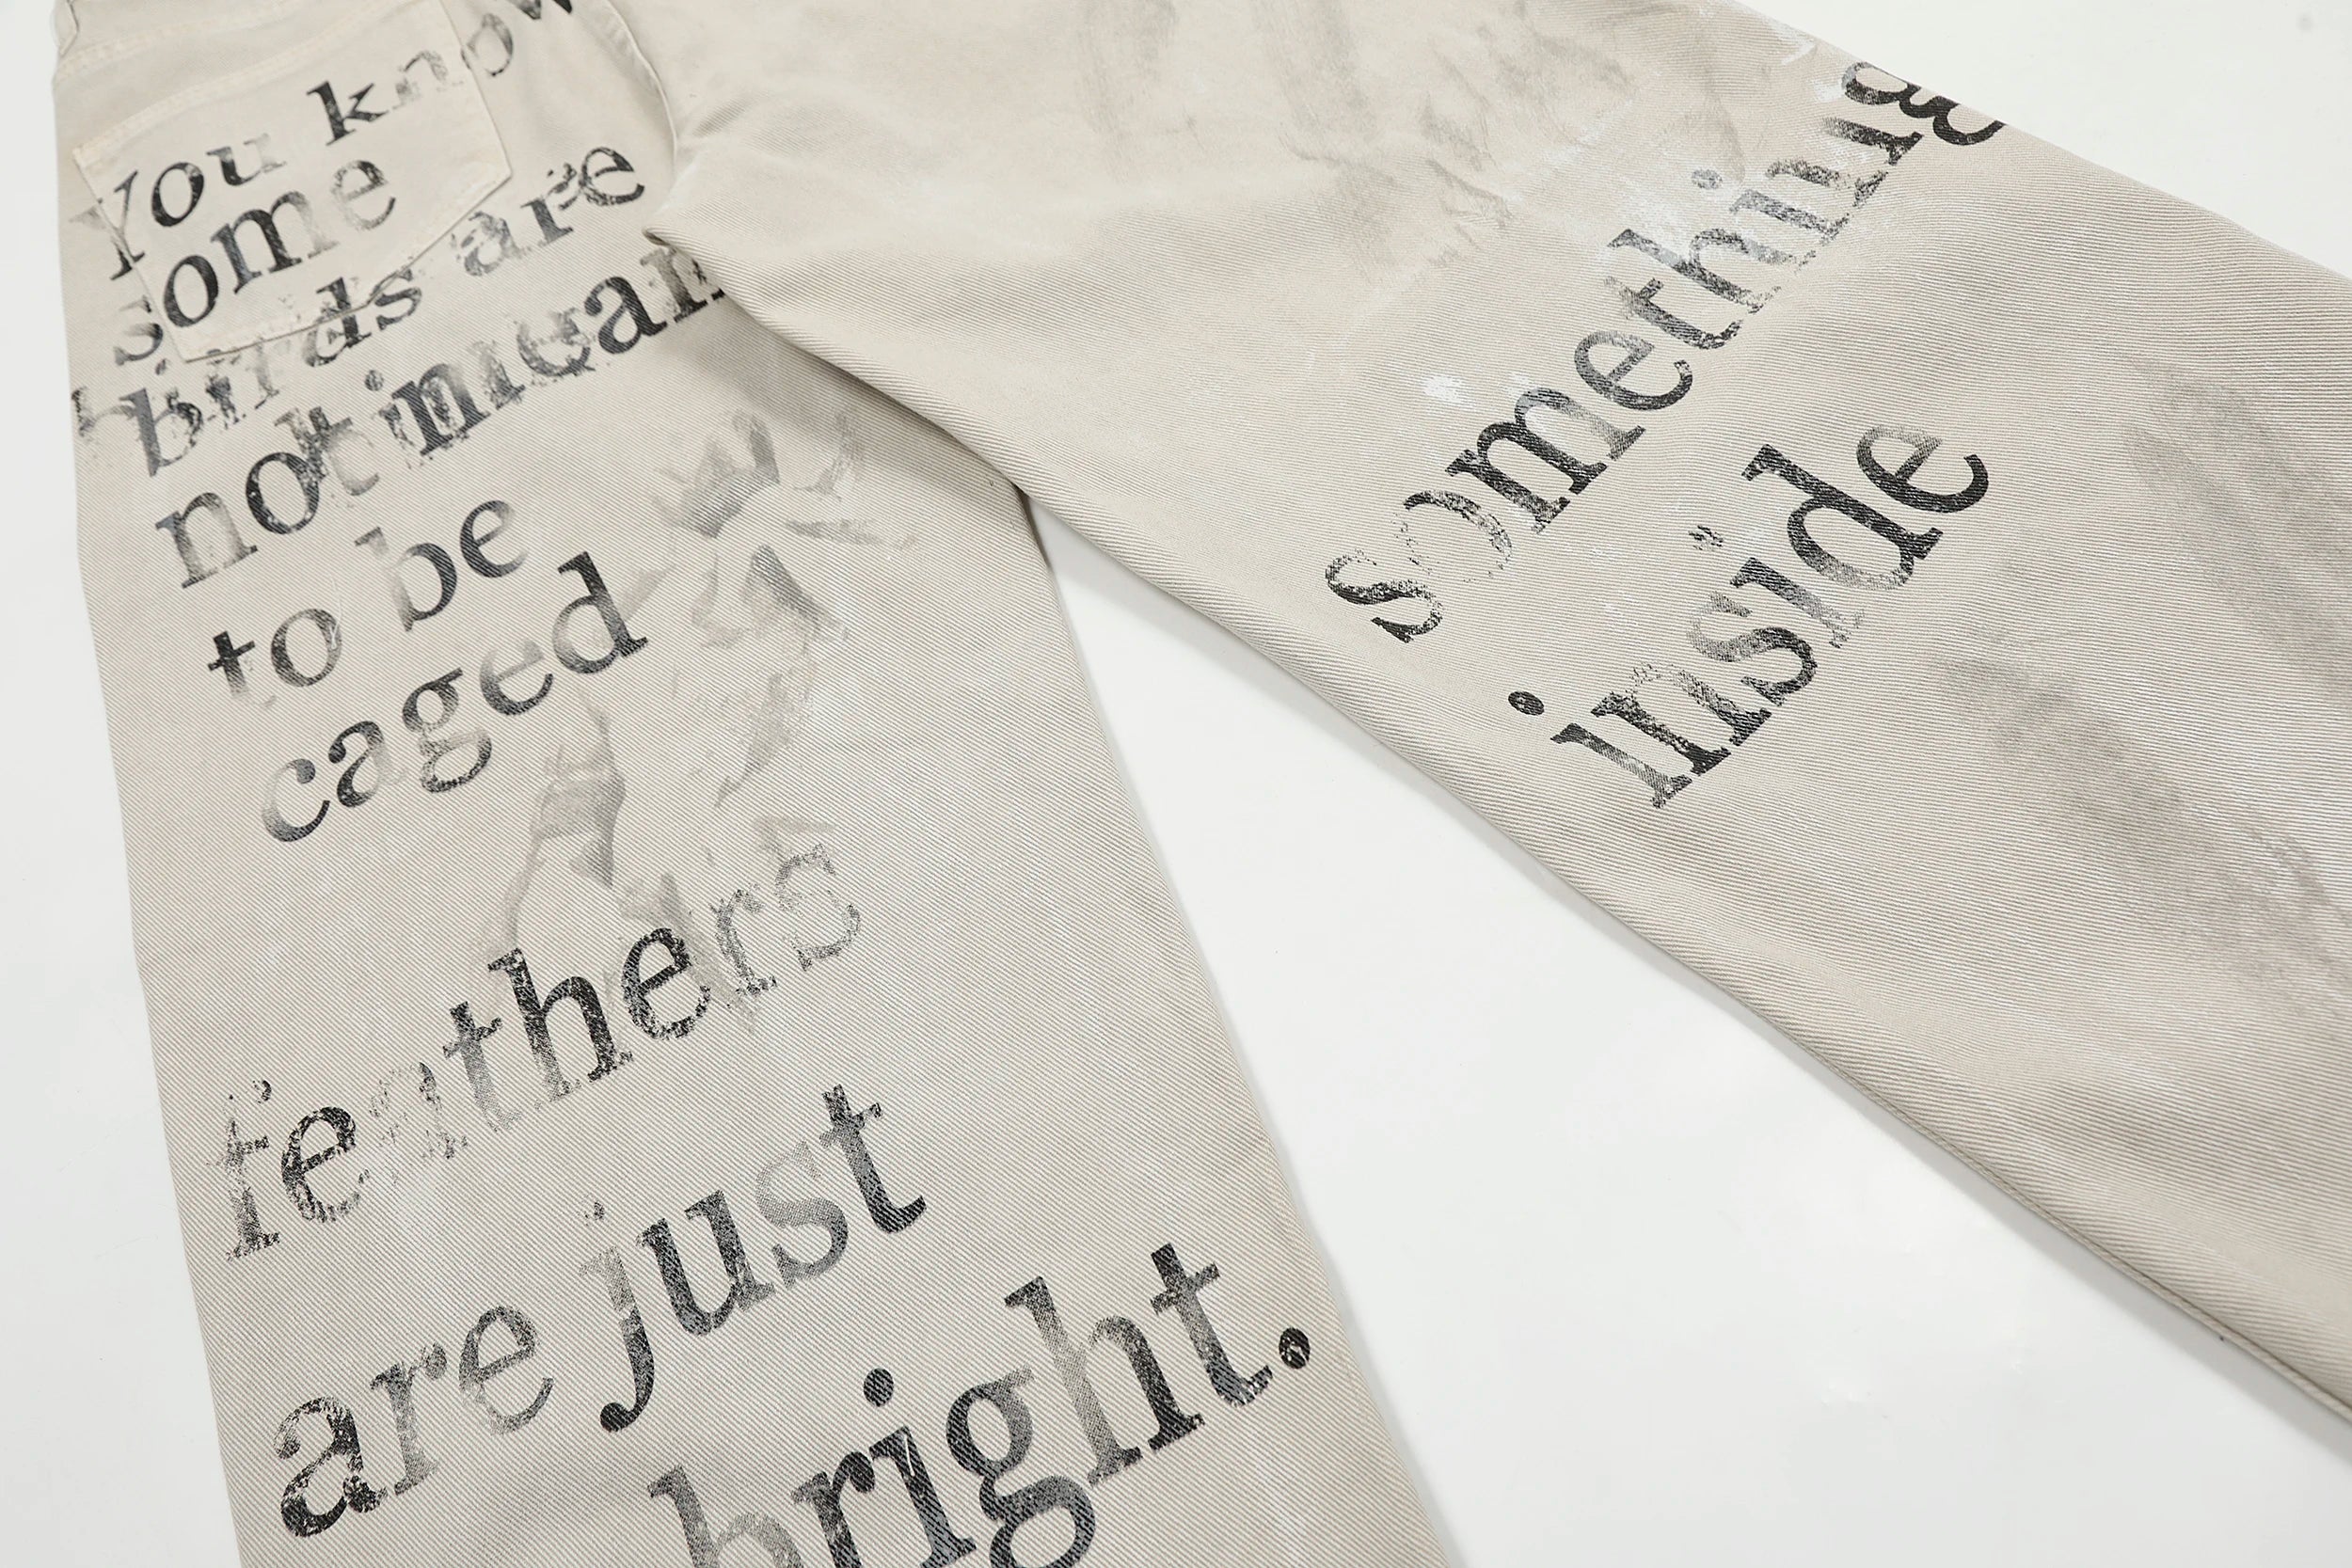 you know
some
birds are
not mean
to be
caged
feathers
are just
bright.
something
inside